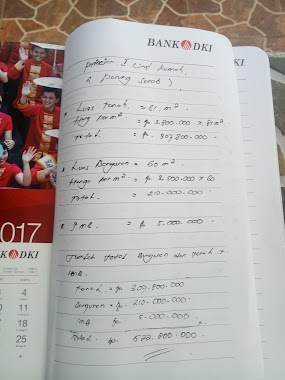 BANK DKI
( Pondong Sorob )
* Luas tanah = 81 m²
Harg per m² = Rp 3.800.000 x 81 m²
Total = Rp. 307.800.000
* Luas Bangunan = 60 m²
Harga per m² = Rp 3.500.000 x 60
Total = 210.000.000
* IMB = Rp 5.000.000
Jumlah total Bangunan dan tanah +
IMB.
tanah = Rp 307.800.000
Bangunan = Rp. 210.000.000
IMB Rp. 5.000.000
Total Rp. 522.800.000
2017
BANK DKI
4
11
18
25